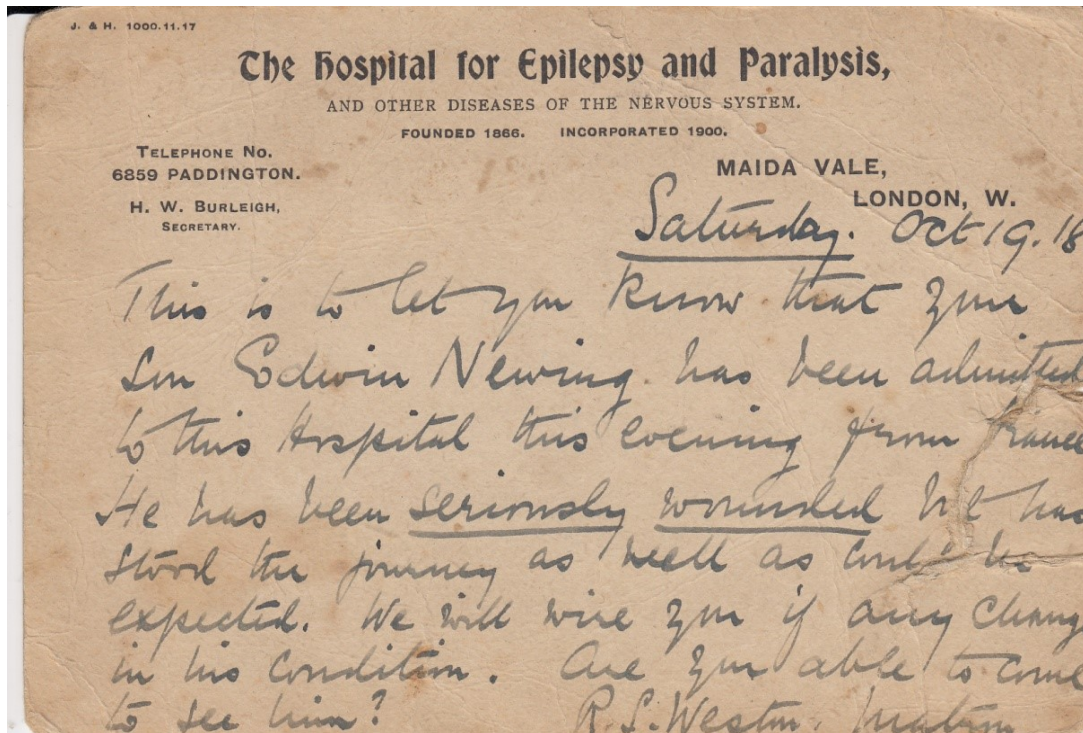 J. & H. 1000.11.17
The Hospital for Epilepsy and Paralysis,
AND OTHER DISEASES OF THE NERVOUS SYSTEM.
FOUNDED 1866. INCORPORATED 1900.
TELEPHONE NO.
6859 PADDINGTON.
H. W. BURLEIGH,
SECRETARY.
MAIDA VALE,
LONDON, W.
Saturday. Oct 19. 18
This is to let you know that your
son Edwin Newing has been admitted
to this Hospital this evening from France
He has been seriously wounded but has
stood the journey as well as could be
expected. We will wire you if any change
in his condition. Are you able to come
to see him? R. S. Weston. Matron